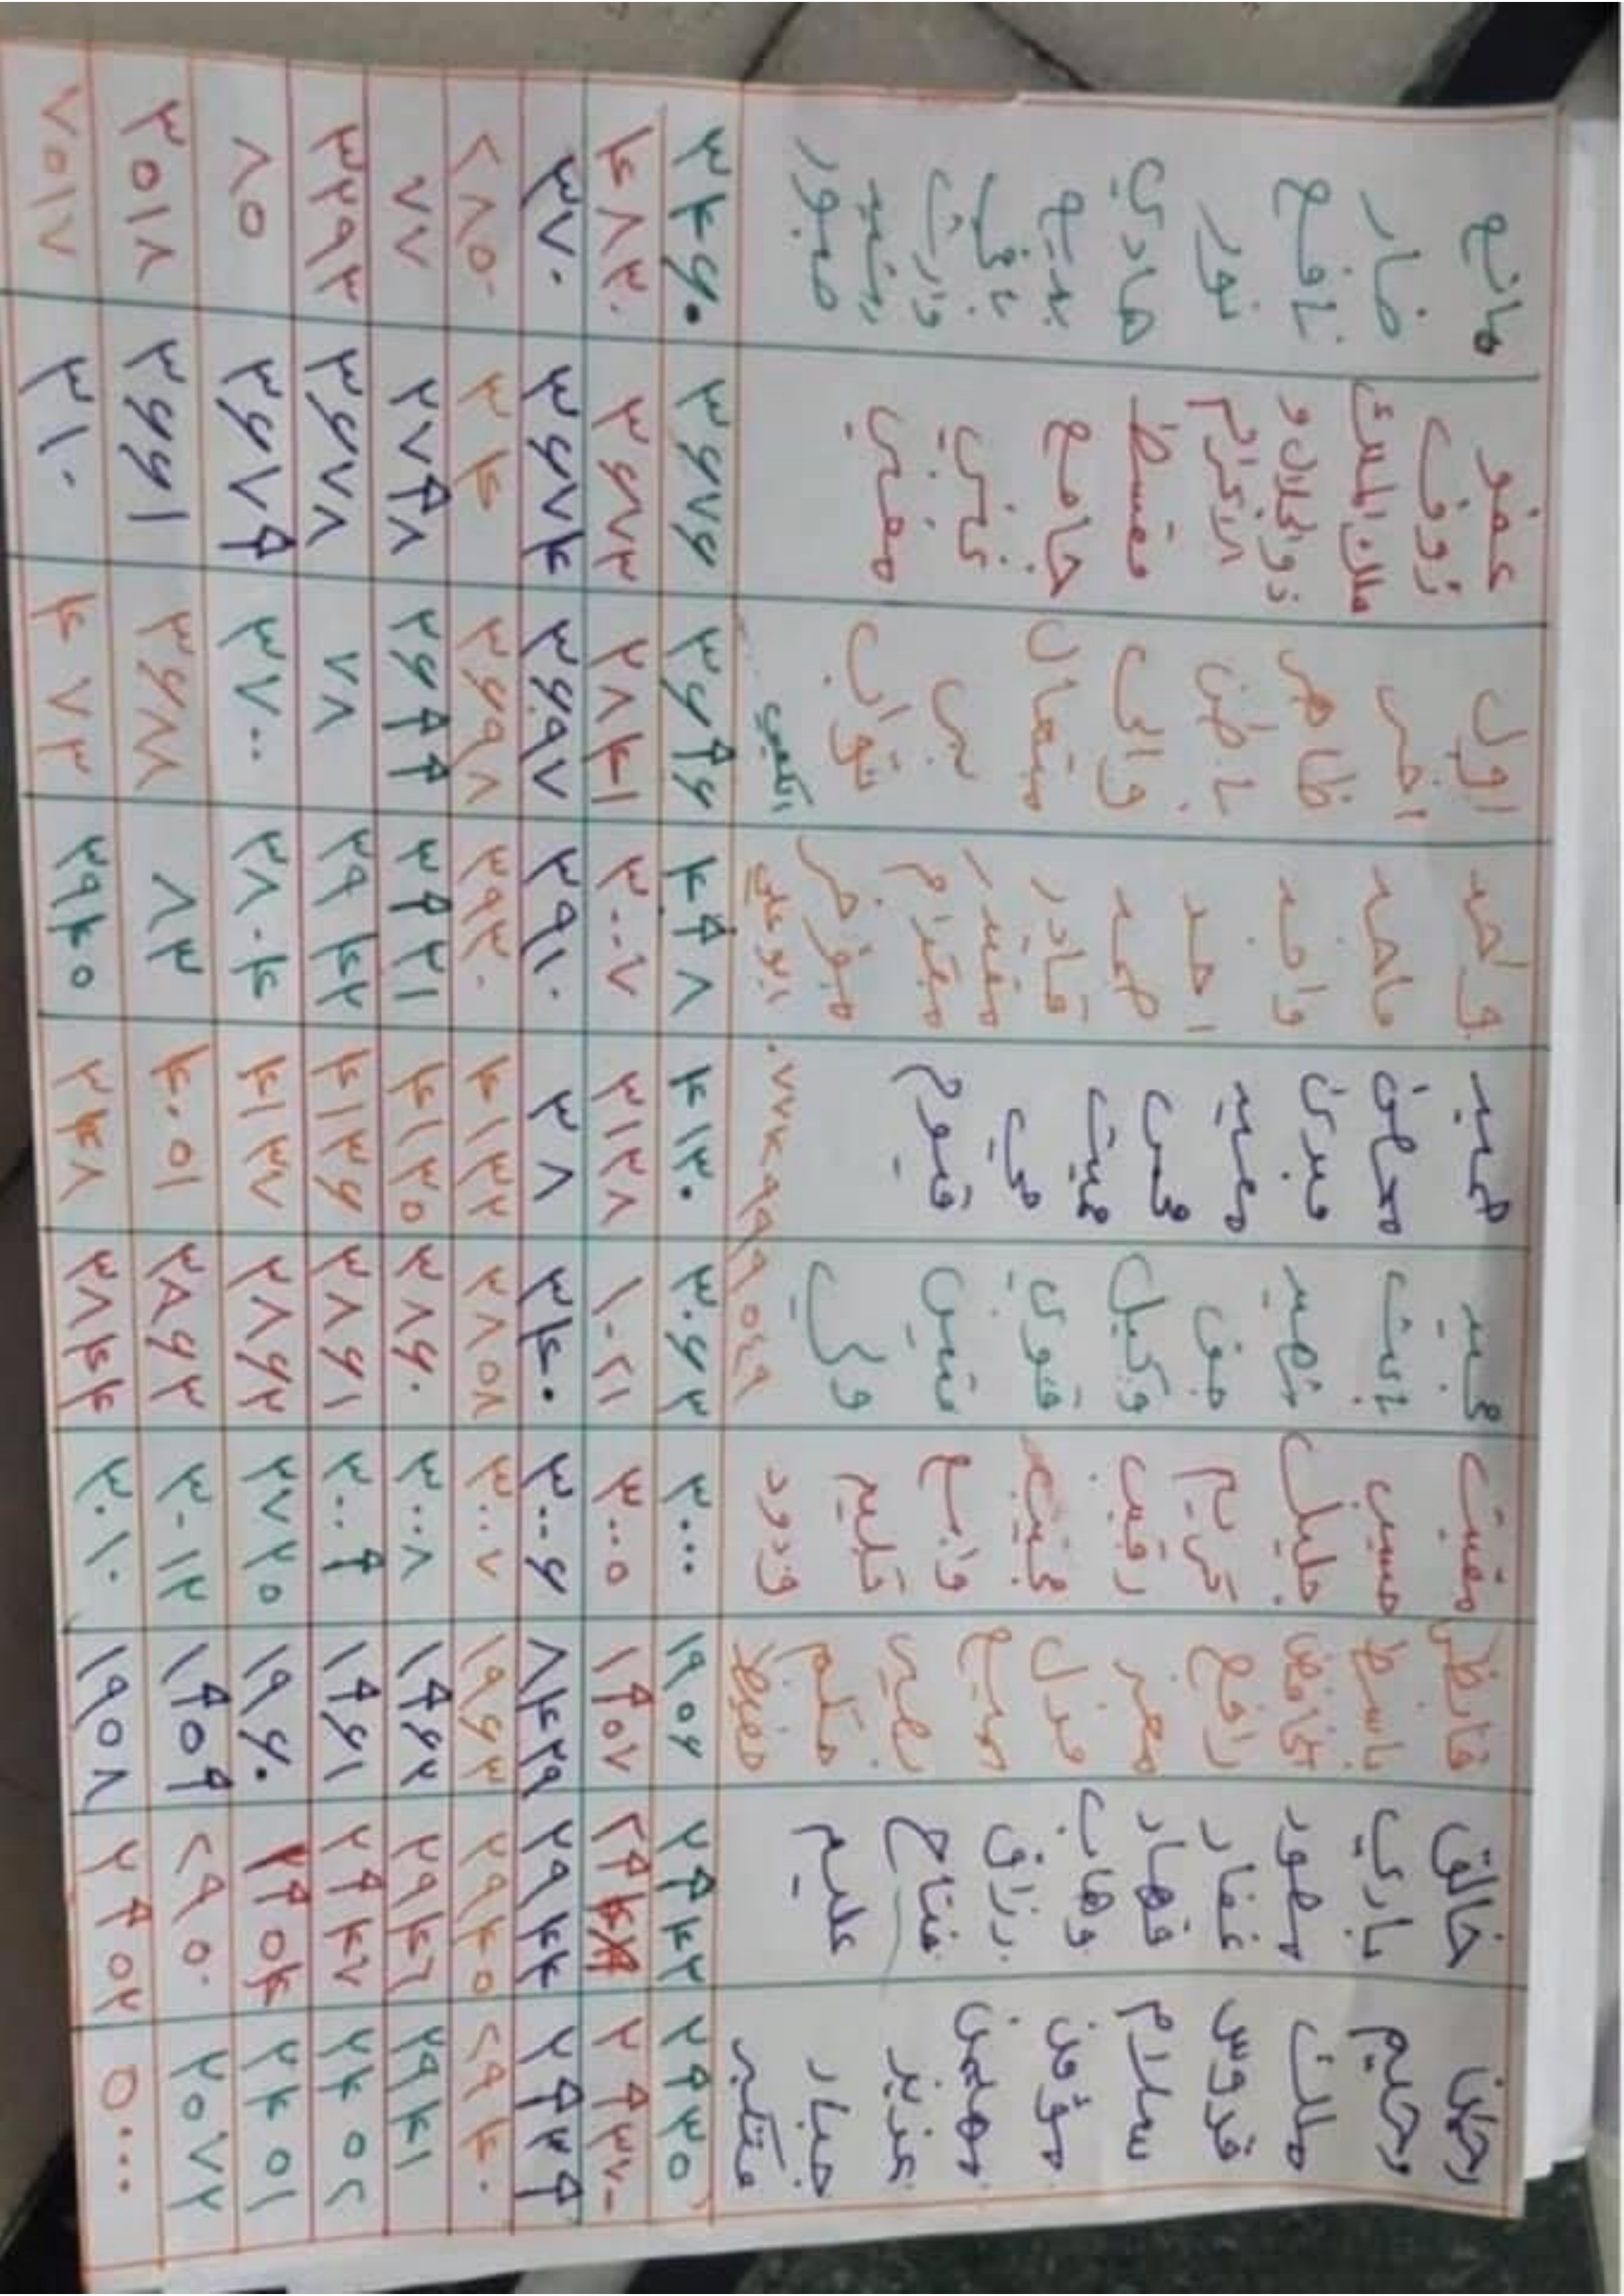 رحمن
رحيم
ملك
قدوس
سلام
مؤمن
مهيمن
عزيز
جبار
متكبر
خالق
باري
مصور
غفار
قهار
وهاب
رزاق
فتاح
عليم
قابض
باسط
خافض
رافع
معز
مذل
سميع
بصير
حكم
حفيظ
مقيت
حسيب
جليل
كريم
رقيب
مجيب
واسع
حكيم
ودود
مجيد
باعث
شهيد
حق
وكيل
قوي
متين
ولي
حميد
محصي
مبدئ
معيد
محي
مميت
حي
قيوم
واحد
ماجد
واجد
احد
صمد
قادر
مقتدر
مقدم
مؤخر
ابو علي
اول
اخر
ظاهر
باطن
والي
متعال
بر
تواب
الكعبي
عفو
رؤوف
مالك الملك
ذو الجلال و
الاكرام
مقسط
جامع
غني
مغني
مانع
ضار
نافع
نور
هادي
بديع
باقي
وارث
رشيد
صبور
٢٩٣٥ ٢٩٤٢ ١٩٠٦ ٣٠٠٠ ٣٠٦٣ ٤١٣٠ ٤٠٩٨ ٣٦٩٦ ٣٦٧٦ ٣٤٦٠
٢٩٣٧ ١٩٥٧ ٣٠٠٥ ١٠٢١ ٣١٢٨ ٣٠٠٧ ٢٨٤١ ٣٦٧٣ ٤٨٣٠
٢٩٣٩ ٢٩٤٤ ٨٤٢٩ ٣٠٠٦ ٣٤٠ ٣٨ ٣٩١٠ ٣٦٩٧ ٣٦٧٤ ٣٧٠
٢٩٤٠ ٢٩٤٥ ١٩٦٣ ٣٠٠٧ ٣٨٥٨ ٤١٣٢ ٣٩٢٠ ٣٦٩٨ ٣٤ ٢٨٥٠
٢٩٤١ ٢٩٤٦ ١٩٦٢ ٣٠٠٨ ٣٨٦٠ ٤١٣٥ ٣٩٢١ ٢٦٩٩ ٢٧٩٨ ٧٧
٢٤٥٢ ٢٩٤٧ ١٩٦١ ٣٠٠٩ ٣٨٦١ ٤١٣٦ ٢٩٤٢ ٧٨ ٣٦٧٨ ٣٢٩٢
٢٤٥١ ٢٩٥٤ ١٩٦٠ ٢٧٢٥ ٣٨٦٢ ٤١٣٧ ٣٨٠٤ ٣٧٠٠ ٣٦٧٩ ٨٥
٢٥٧٢ ٢٩٥٠ ١٩٥٩ ٣٠١٢ ٣٨٦٣ ٤٠٥١ ٨٣ ٣٦٨٨ ٣٦٦١ ٣٥١٨
٥٠٠٠ ٢٩٥٢ ١٩٥٨ ٣٠١٠ ٣٨٤٤ ٣٤٨ ٣٩٤٥ ٤٠٧٣ ٣١٠ ٧٥١٧